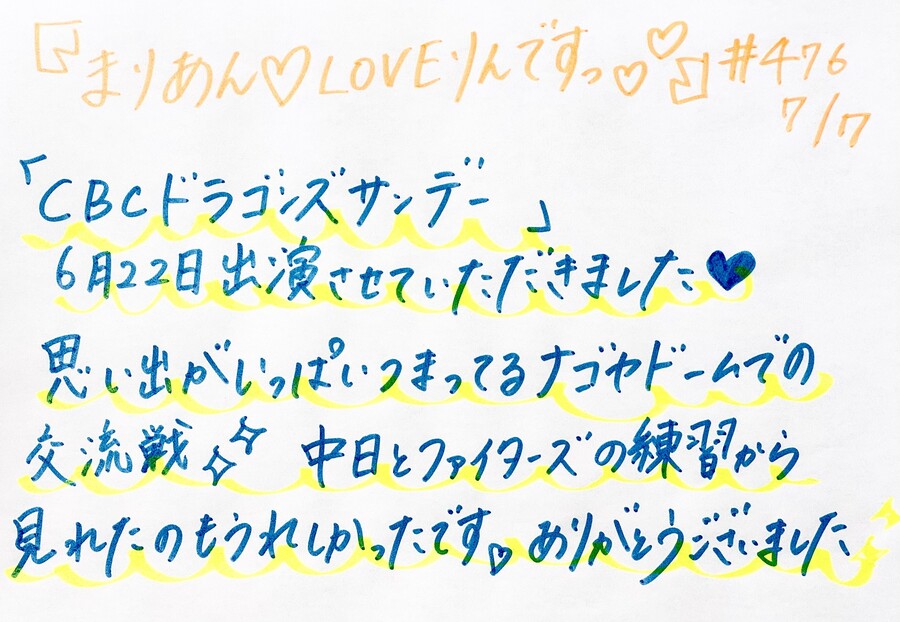 『まりあん♡LOVEりんですっ♡♡』#476
7/7
「CBCドラゴンズサンデー」
6月22日出演させていただきました♥
思い出がいっぱいつまってるナゴヤドームでの
交流戦✧✧ 中日とファイターズの練習から
見れたのもうれしかったです♡ありがとうございました